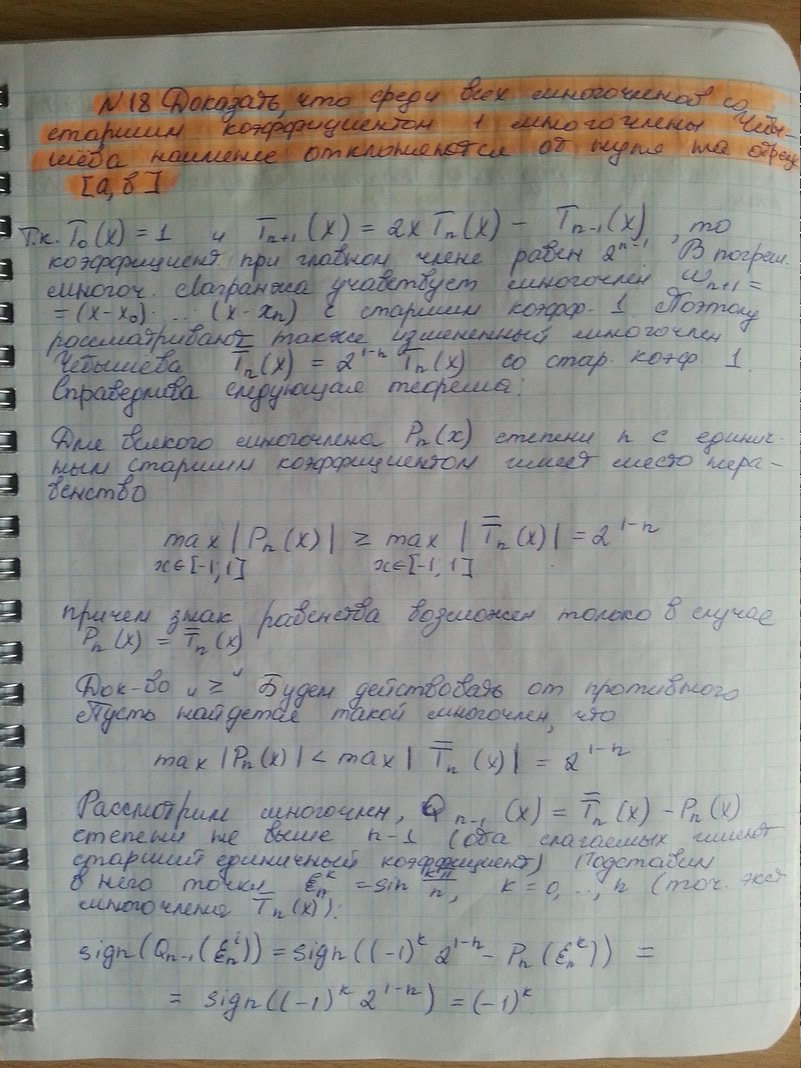 N 18 Доказать, что среди всех многочленов со
старшим коэффициентом 1 многочлены Чебы-
шёва наименее отклоняются от нуля на отрезк
[a, b]
Т.к. T₀(x) = 1 и Tₙ₊₁(x) = 2x Tₙ(x) - Tₙ₋₁(x), то
коэффициент при главном члене равен 2ⁿ⁻¹. В погреш.
многоч. Лагранжа учавствует многочлен ωₙ₊₁ =
= (x-x₀)· ... (x-xₙ) с старшим коэфф. 1. Поэтому
рассматривают также измененный многочлен
Чебышева T̿ₙ(x) = 2¹⁻ⁿ Tₙ(x) со стар. коэф 1.
Справедлива следующая теорема:
Для всякого многочлена Pₙ(x) степени n с единич-
ным старшим коэффициентом имеет место нера-
венство
max |Pₙ(x)| ≥ max |T̿ₙ(x)| = 2¹⁻ⁿ
x∈[-1,1] x∈[-1,1]
причем знак равенства возможен только в случае
Pₙ(x) = T̿ₙ(x)
Док-во „≥" Будем действовать от противного
Пусть найдется такой многочлен, что
max |Pₙ(x)| < max |T̿ₙ(x)| = 2¹⁻ⁿ
Рассмотрим многочлен, Qₙ₋₁(x) = T̿ₙ(x) - Pₙ(x)
степени не выше n-1 (оба слагаемых имеют
старший единичный коэффициент) Подставим
в него точки ξₙᵏ = sin kπ/n, k = 0, ..., n (точ. экст
многочлена Tₙ(x)):
sign(Qₙ₋₁(ξₙⁱ)) = sign((-1)ᵏ 2¹⁻ⁿ - Pₙ(ξₙᵏ)) =
= sign((-1)ᵏ 2¹⁻ⁿ) = (-1)ᵏ.